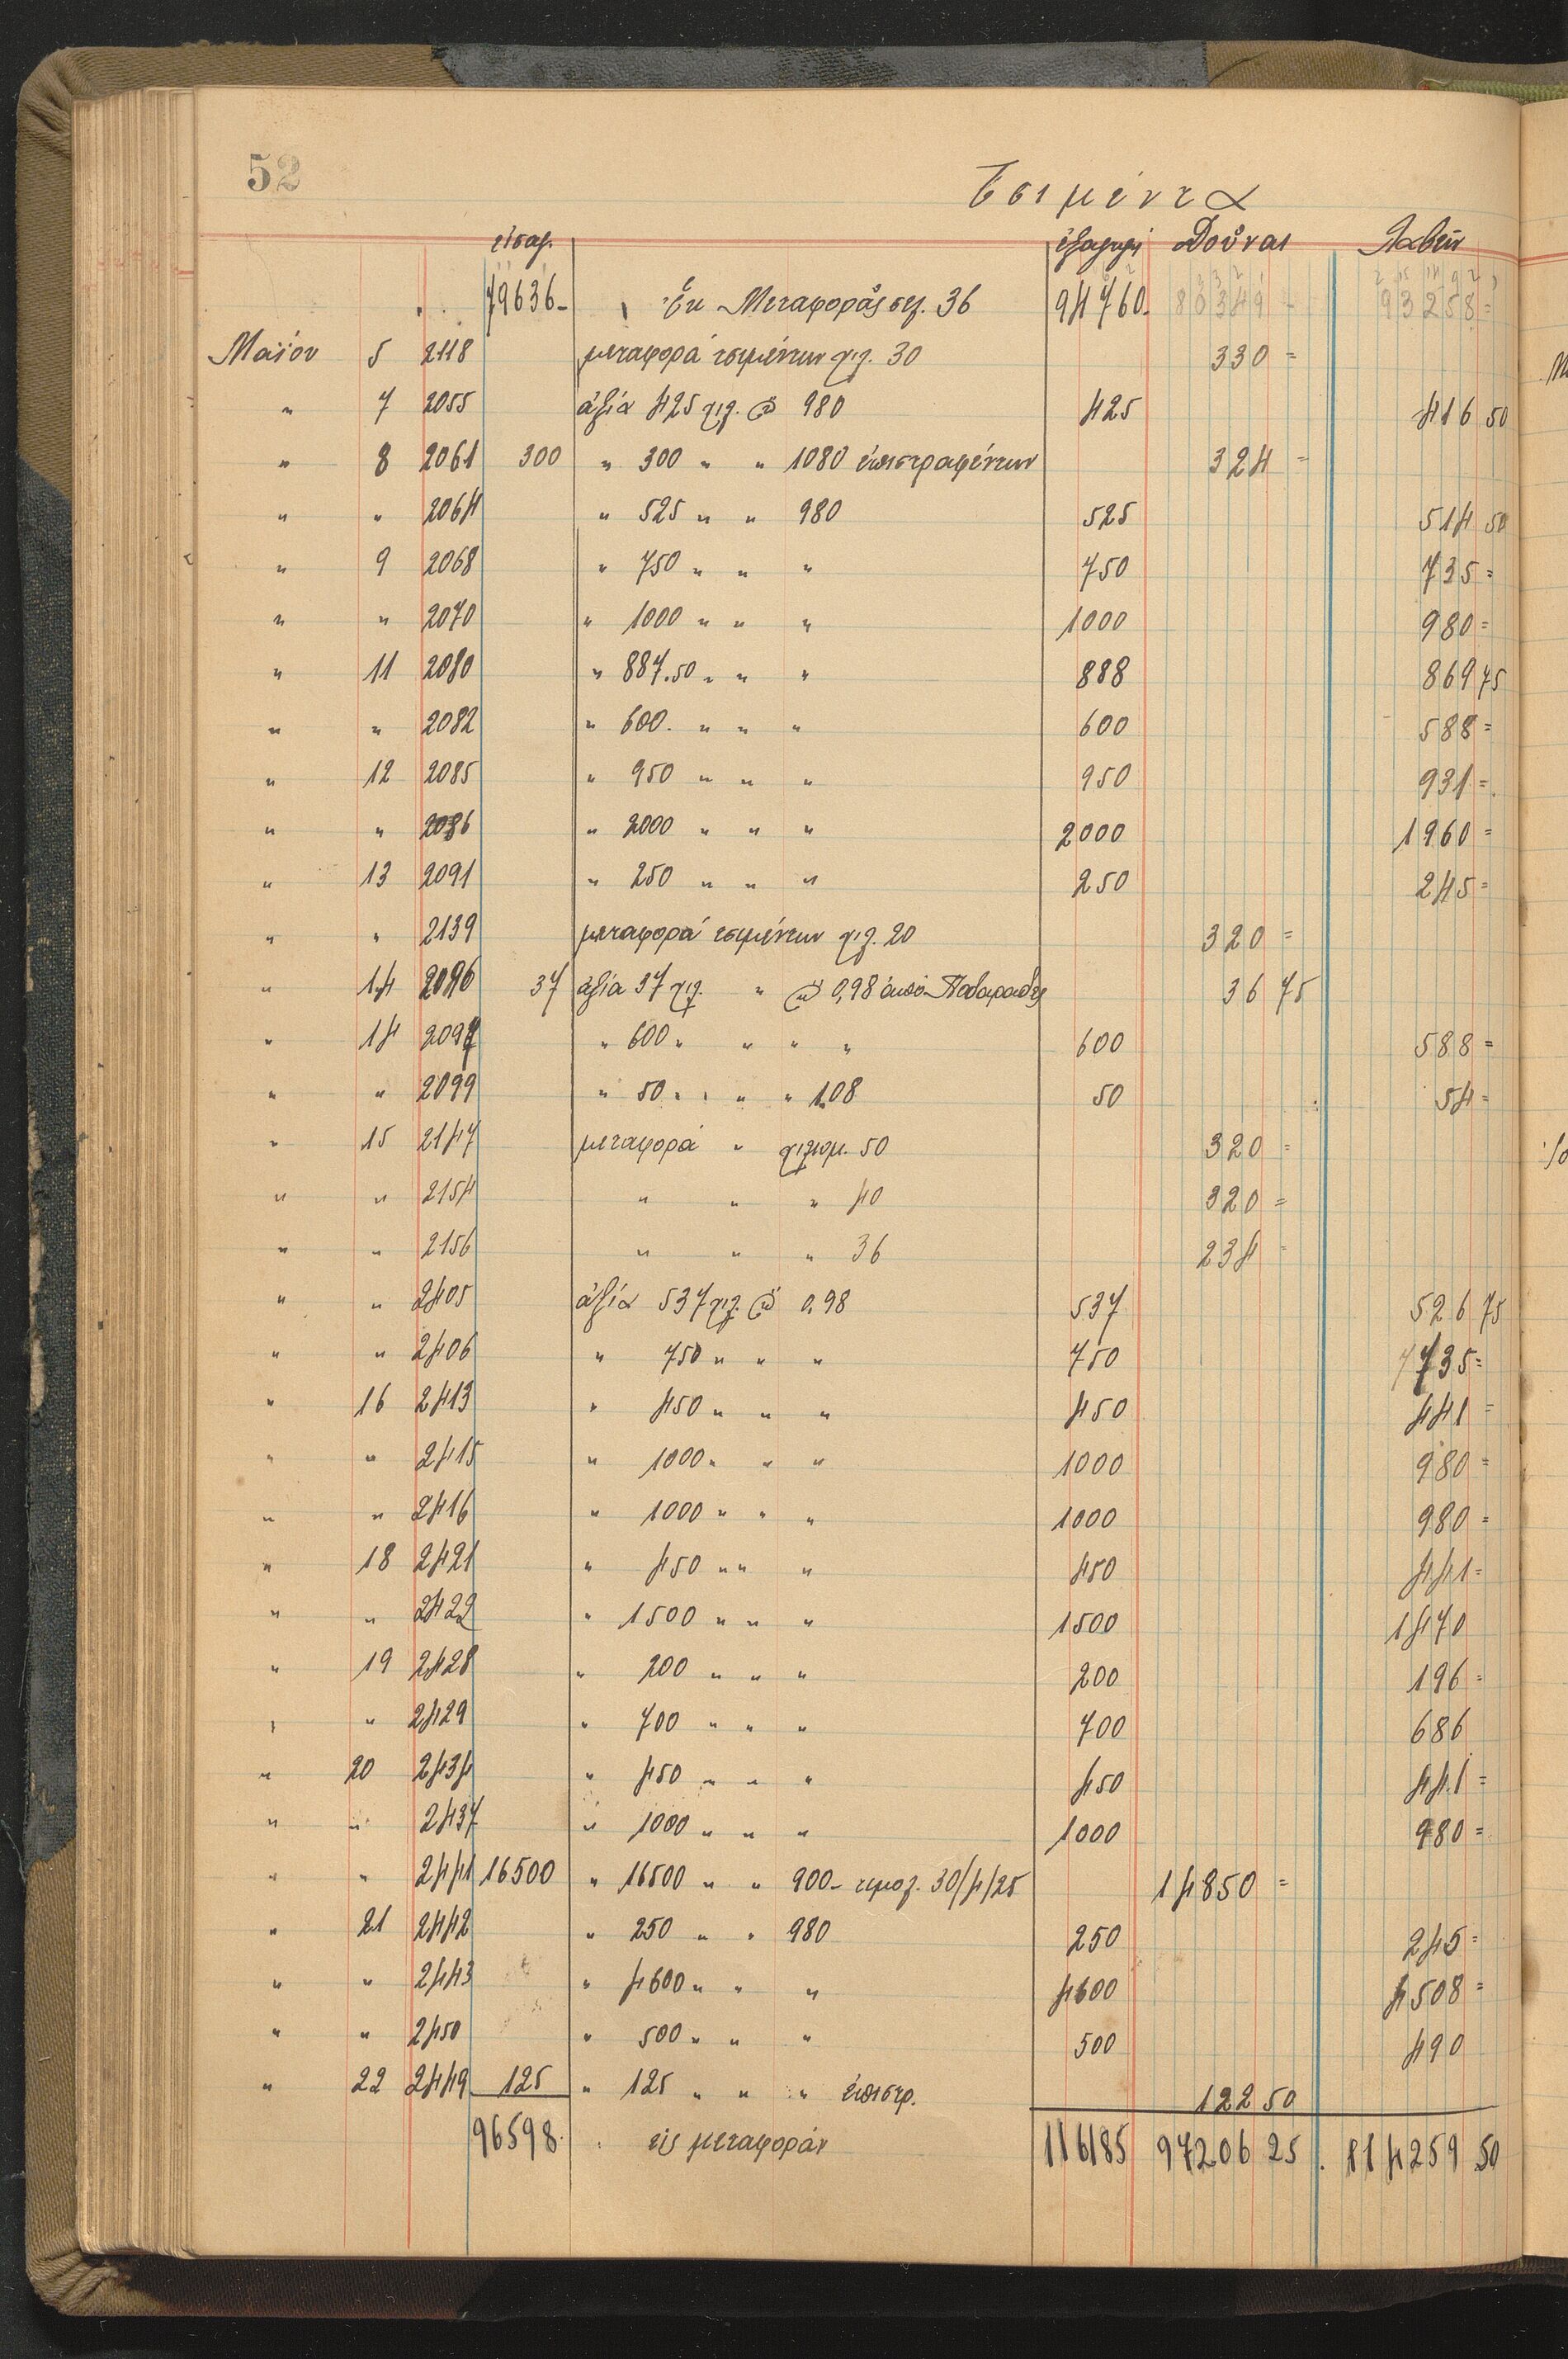 52
Τσιμέντα
εἰσαγ. ἐξαγωγή Δοῦναι Λαβεῖν
79636- Ἐκ Μεταφορᾶς σελ. 36 94760- 80349- 93258=
Μαΐου 5 2118 μεταφορά τσιμέντων χιλ. 30 330=
" 7 2055 ἀξία 425 χιλ. @ 980 425 416 50
" 8 2061 300 " 300 " " 1080 ἐπιστραφέντων 324=
" " 2064 " 525 " " 980 525 514 50
" 9 2068 " 750 " " " 750 735=
" " 2070 " 1000 " " " 1000 980=
" 11 2080 " 887.50 " " " 888 869 75
" " 2082 " 600. " " " 600 588=
" 12 2085 " 950 " " " 950 931=
" " 2086 " 2000 " " " 2000 1960=
" 13 2091 " 250 " " " 250 245=
" " 2139 μεταφορά τσιμέντων χιλ. 20 320=
" 14 2096 37 ἀξία 37 χιλ. " @ 0,98 ἀπό 36 75
" 14 2097 " 600 " " " " 600 588=
" " 2099 " 50 " " " " 1.08 50 54=
" 15 2147 μεταφορά " χιλιομ. 50 320=
" " 2154 " " " 40 320=
" " 2156 " " " 36 234=
" " 2405 ἀξία 537 χιλ. @ 0,98 537 526 75
" " 2406 " 750 " " " 750 735=
" 16 2413 " 450 " " " 450 441=
" " 2415 " 1000 " " " 1000 980=
" " 2416 " 1000 " " " 1000 980=
" 18 2421 " 450 " " " 450 441=
" " 2422 " 1500 " " " 1500 1470
" 19 2428 " 200 " " " 200 196=
" " 2429 " 700 " " " 700 686
" 20 2434 " 450 " " " 450 441=
" " 2437 " 1000 " " " 1000 980=
" " 2441 16500 " 16500 " " 900- τιμολ. 30/4/25 14850=
" 21 2442 " 250 " " 980 250 245=
" " 2443 " 4600 " " " 4600 4508=
" " 2450 " 500 " " " 500 490
" 22 2449 125 " 125 " " " ἐπιστρ. 122 50
96598. εἰς μεταφοράν 116185 97206 25 . 114259 50